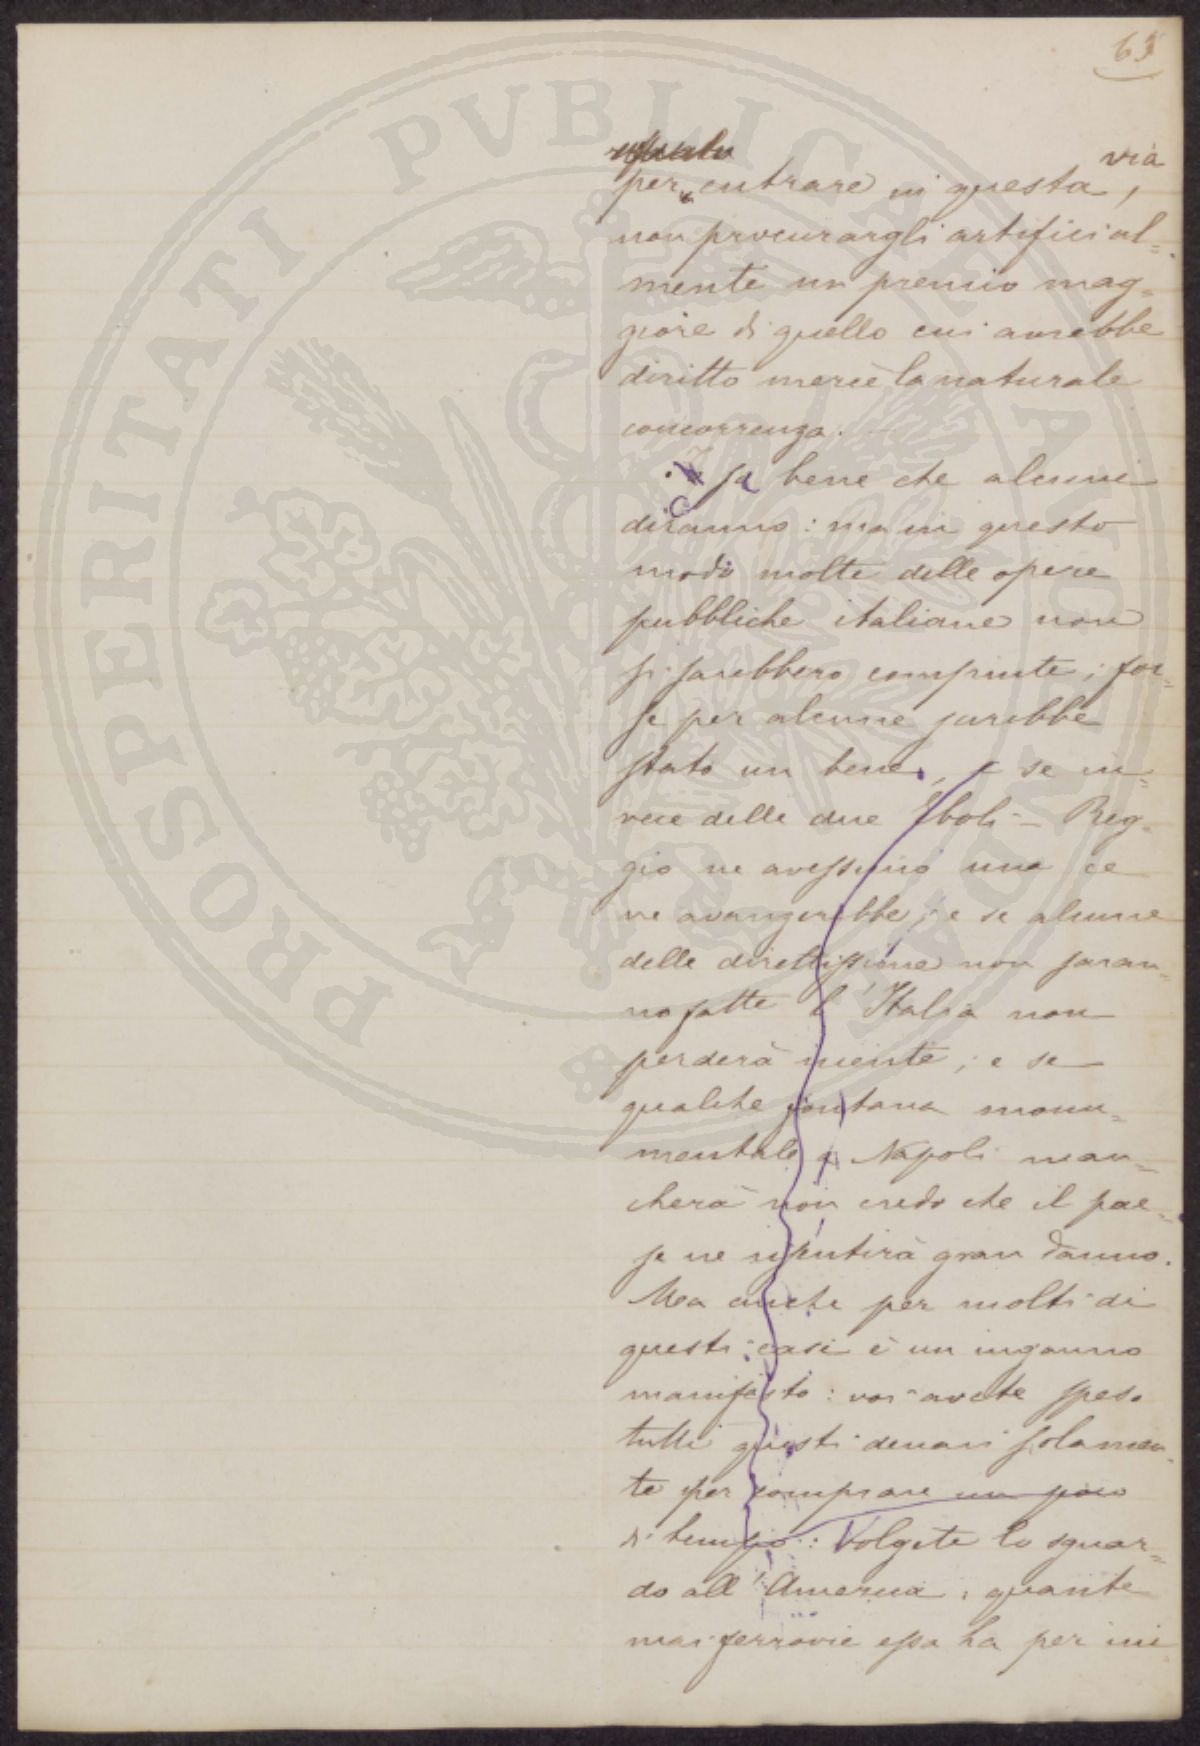 63
via
per entrare in questa,
non procurargli artificial=
mente un premio mag=
giore di quello cui avrebbe
diritto mercè la naturale
concorrenza.
Sa bene che alcuni
diranno: ma in questo
modo molte delle opere
pubbliche italiane non
si sarebbero compiute; for=
se per alcune sarebbe
stato un bene, e se in=
vece delle due Eboli - Reg=
gio ne avessimo una ce
ne avanzerebbe; e se alcune
delle direttissime non saran=
no fatte l'Italia non
perderà niente; e se
qualche fontana monu=
mentale a Napoli man=
cherà non credo che il pae=
se ne risentirà gran danno.
Ma anche per molti di
questi casi è un inganno
manifesto: voi avete speso
tutti questi denari solamen=
te per comprare un poco
di tempo: Volgete lo sguar=
do all'America, quante
mai ferrovie essa ha per ini
PROSPERITATI PVBLICAE AVGENDAE